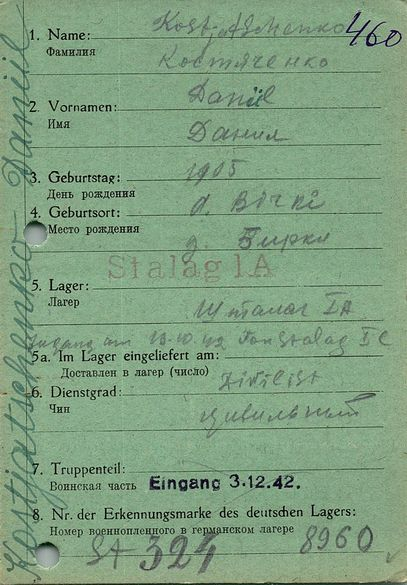 460
1. Name:
Фамилия
Костяченко
2. Vornamen: Daniil
Имя
Данил
3. Geburtstag: 1905
День рождения
4. Geburtsort: d.
Место рождения
д. Бирки
Stalag 1A
5. Lager:
Лагер
Шталаг IA
am 19.10.42 Stalag
5a. Im Lager eingeliefert am:
Доставлен в лагер (число)
6. Dienstgrad: Zivilist
Чин
цивильный
7. Truppenteil:
Воинская часть Eingang 3.12.42.
8. Nr. der Erkennungsmarke des deutschen Lagers:
Номер военнопленного в германском лагере 8960
324
Kostjatschenko-Daniil